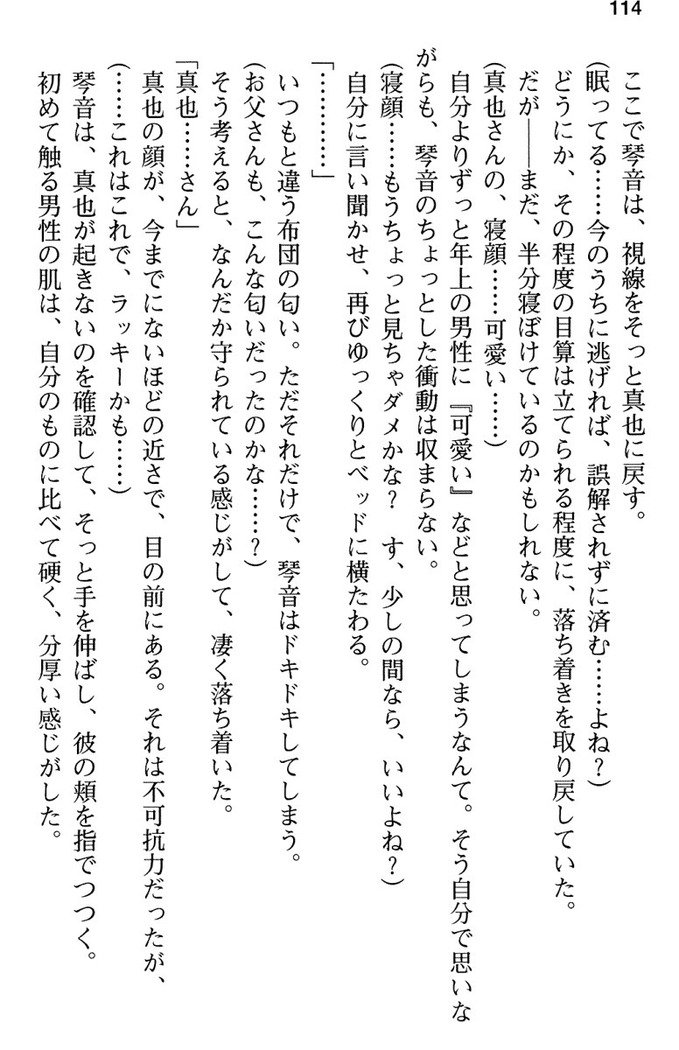 114
ここで琴音は、視線をそっと真也に戻す。
(眠ってる……今のうちに逃げれば、誤解されずに済む……よね?)
どうにか、その程度の目算は立てられる程度に、落ち着きを取り戻していた。
だが――まだ、半分寝ぼけているのかもしれない。
(真也さんの、寝顔……可愛い……)
自分よりずっと年上の男性に『可愛い』などと思ってしまうなんて。そう自分で思いな
がらも、琴音のちょっとした衝動は収まらない。
(寝顔……もうちょっと見ちゃダメかな? す、少しの間なら、いいよね?)
自分に言い聞かせ、再びゆっくりとベッドに横たわる。
「…………」
いつもと違う布団の匂い。ただそれだけで、琴音はドキドキしてしまう。
(お父さんも、こんな匂いだったのかな……?)
そう考えると、なんだか守られている感じがして、凄く落ち着いた。
「真也……さん」
真也の顔が、今までにないほどの近さで、目の前にある。それは不可抗力だったが、
(……これはこれで、ラッキーかも……)
琴音は、真也が起きないのを確認して、そっと手を伸ばし、彼の頬を指でつつく。
初めて触る男性の肌は、自分のものに比べて硬く、分厚い感じがした。